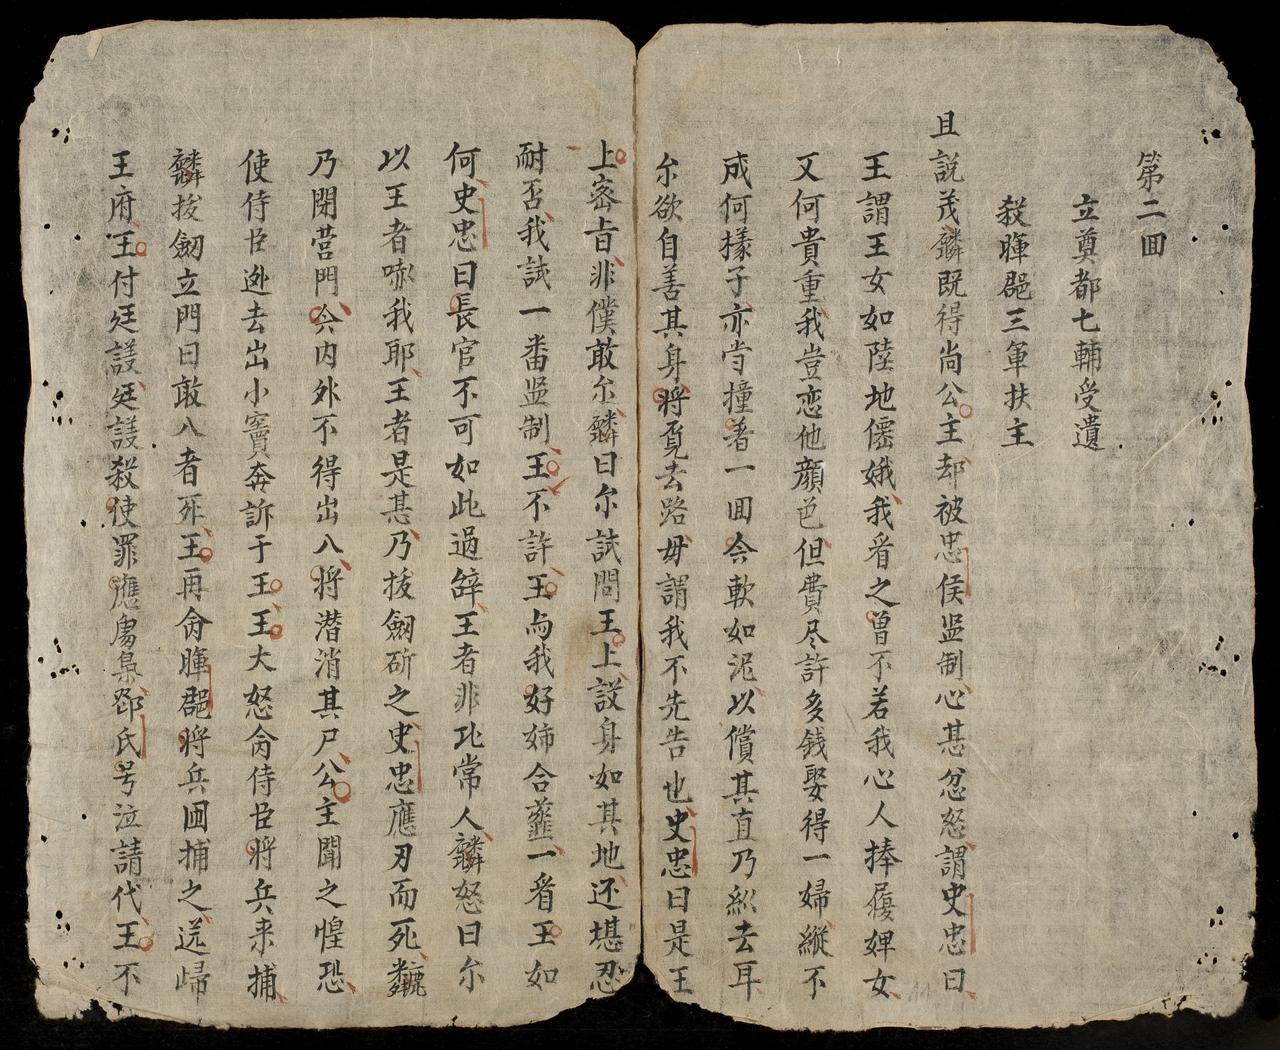 第二回
立奠都七輔受遺
殺暉郡三軍扶主
且説茂麟既得尚公主却被忠侯监制心甚忿怒謂史忠曰
王謂王女如陸地僊娥我看之曽不若我心人捧履婢女
又何貴重我豈恋他顔色但費尽許多銭娶得一婦縱不
成何様子亦当撞着一回令軟如泥以償其直乃縱去耳
尓欲自善其身将覓去路毋謂我不先告也史忠曰是王
上密旨非僕敢尓麟曰尓試問王上設身如其地还堪忍
耐否我試一番监制王不許王与我好姉合虀一看王如
何史忠曰長官不可如此過辞王者非比常人麟怒曰尓
以王者嚇我耶王者是甚乃拔劒斫之史忠應刃而死麟
乃閉営門令内外不得出入将潜消其尸公主聞之惶恐
使侍臣逊去出小竇奔訴于王王大怒命侍臣将兵来捕
麟拔劒立門曰敢入者死王再命暉郡将兵囲捕之迒歸
王府王付廷議廷議殺使罪應梟鄧氏号泣請代王不